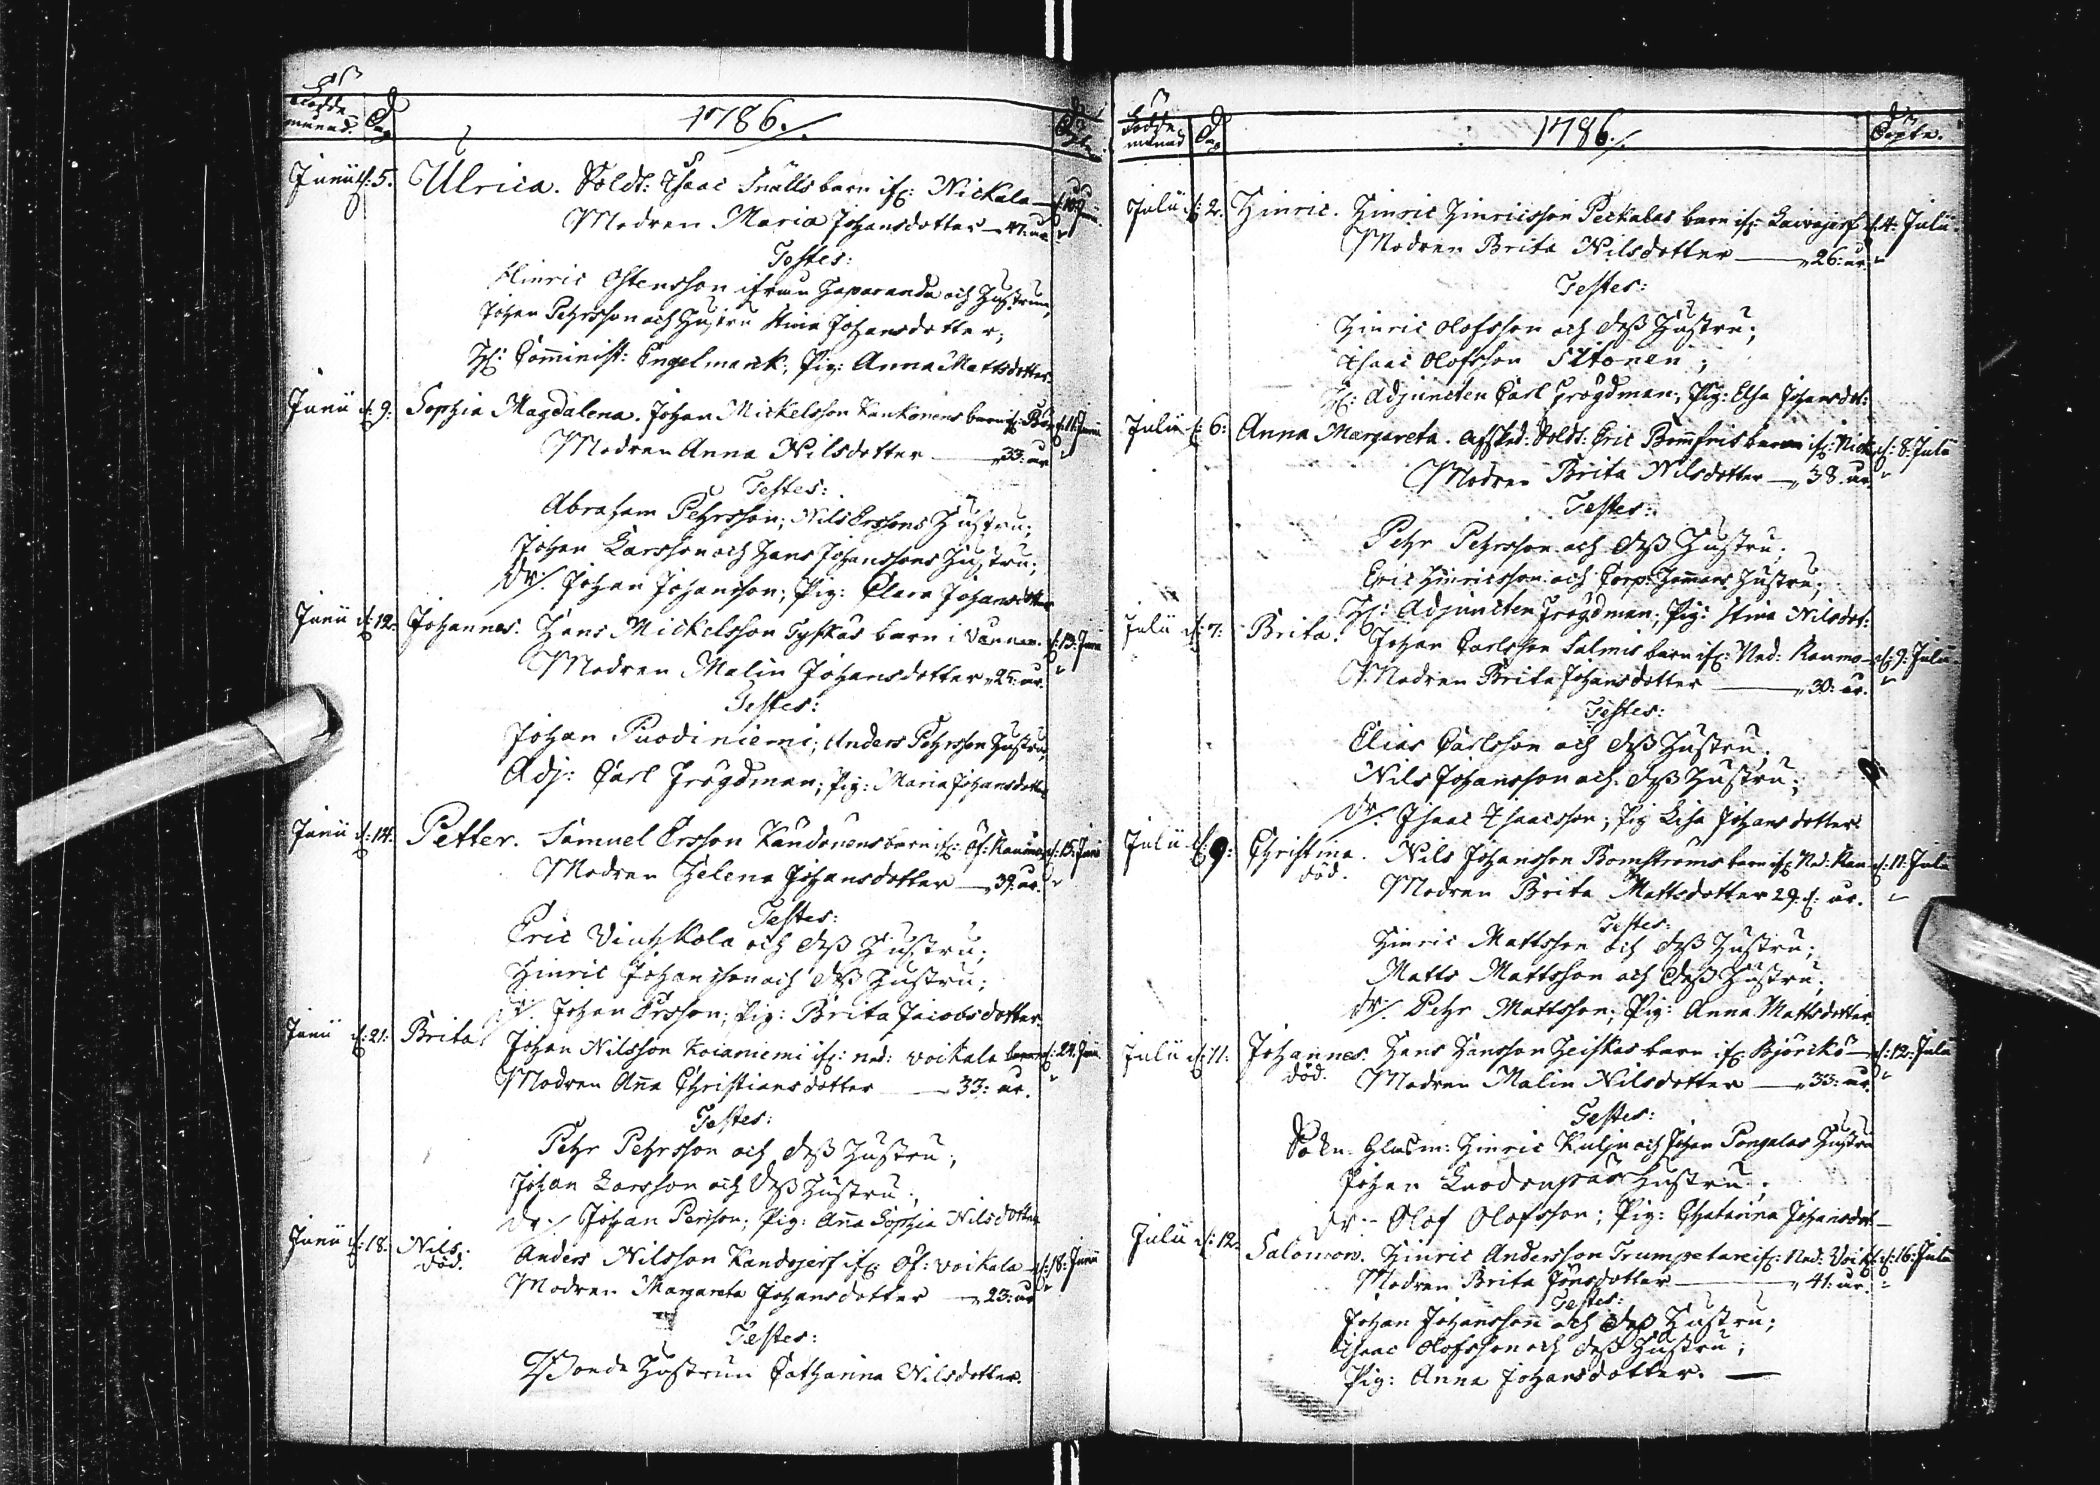 Födde
månad. Dag 1786./. Döpte
Junii d: 5. Ulrica. Soldt: Isaac Snälls barn ifr: Nickala d: 10 Junii
Modren Maria Johansdotter 47: år
Testes:
Hinric Ostensson ifrån Haparanda och Hustrun,
Johan Pehrsson och Hustru Stina Johansdotter;
Hr: Comminist: Engelmark, Pig: Anna Mattsdotter.
Junii d: 9: Sophia Magdalena. Johan Mickelsson Kankonens barn ifr: d: 11: Junii
Modren Anna Nilsdotter 33: år
Testes:
Abraham Pehrsson; Nils Erssons Hustru;
Johan Larsson och Hans Johanssons Hustru;
Dr/. Johan Johansson; Pig: Clara Johansdotter
Junii d: 12: Johannes. Hans Mickelsson Tyskas barn i Vannan. d: 13: Junii
Modren Malin Johansdotter 25: år.
Testes:
Johan Puodiniemi; Anders Pehrsson Hustru;
Adj: Carl Frögdman; Pig: Maria Johansdotter
Junii d: 14: Petter. Samuel Ersson Kandonens barn ifr: Öf: Raumo d: 15: Junii
Modren Helena Johansdotter 39: år.
Testes:
Eric Vinhkola och dess Hustru;
Hinric Johansson och dess Hustru;
Dr/. Johan Ersson; Pig: Brita Jacobsdotter.
Junii d: 21: Brita. Johan Nilsson Koianiemi ifr: ned: voikala barn d: 24: Junii
Modren Ana Christiansdotter 33: år.
Testes:
Pehr Pehrsson och dess Hustru;
Johan Larsson och dess Hustru;
Dr:/ Johan Persson; Pig: Ana Sophia Nilsdotter
Junii d: 18: Nils. Anders Nilsson Kandojerf ifr: Öf: voikala d: 18: Junii
död. Modren Margareta Johansdotter 23: år
Testes:
Bonde Hustrun Catharina Nilsdotter.
Födde
månad Dag 1786./. Döpte.
Julii d: 2. Hinric. Hinric Hinricsson Peckalas barn ifr: Laivajerf d: 4: Julii
Modren Brita Nilsdotter 26: år:
Testes:
Hinric Olofsson och dess Hustru;
Isaac Olofsson Siltonen;
Hr: Adjuncten Carl Frögdman; Pig: Elsa Johansdot:
Julii d: 6: Anna Margareta. Afsked: Soldt: Eric Bomfris barn ifr: Nick d: 8: Julii
Modren Brita Nilsdotter 38. år.
Testes:
Pehr Pehrsson och dess Hustru;
Eric Hinricsson och Corp: Hammars Hustru;
Hr: Adjuncten Frögdman; Pig: Stina Nilsdot:
Julii d: 7: Brita. Johan Carlsson Salmis barn ifr: Ned: Raumo d: 9: Julii
Modren Brita Johansdotter 30: år.
Testes:
Elias Carlsson och dess Hustru;
Nils Johansson och dess Hustru;
Dr/. Isaac Isaacsson; Pig Lisa Johansdotter
Julii d: 9: Christina. Nils Johansson Bomströms barn ifr: Ned: Rau d: 11: Julii
död. Modren Brita Mattsdotter 29. år.
Testes:
Hinric Mattsson och dess Hustru;
Matts Mattsson och dess Hustru;
Dr/. Pehr Mattsson; Pig: Anna Mattsdotter.
Julii d: 11: Johannes. Hans Hansson Heiskas barn ifr: Björckö d: 12: Julii
död. Modren Malin Nilsdotter 33: år.
Testes:
Sokn. Glasm: Hinric Kulju och Johan Pongalas Hustru
Johan Hustru;
Dr:- Olof Olofsson; Pig: Chatarina Johansdot
Julii d: 12: Salomon. Hinric Andersson Trumpetare ifr: Ned: Voik. d: 16: Julii
Modren Brita Jönsdotter 41: år.
Testes:
Johan Johansson och dess Hustru;
Isaac Olofsson och dess Hustru;
Pig: Anna Johansdotter.